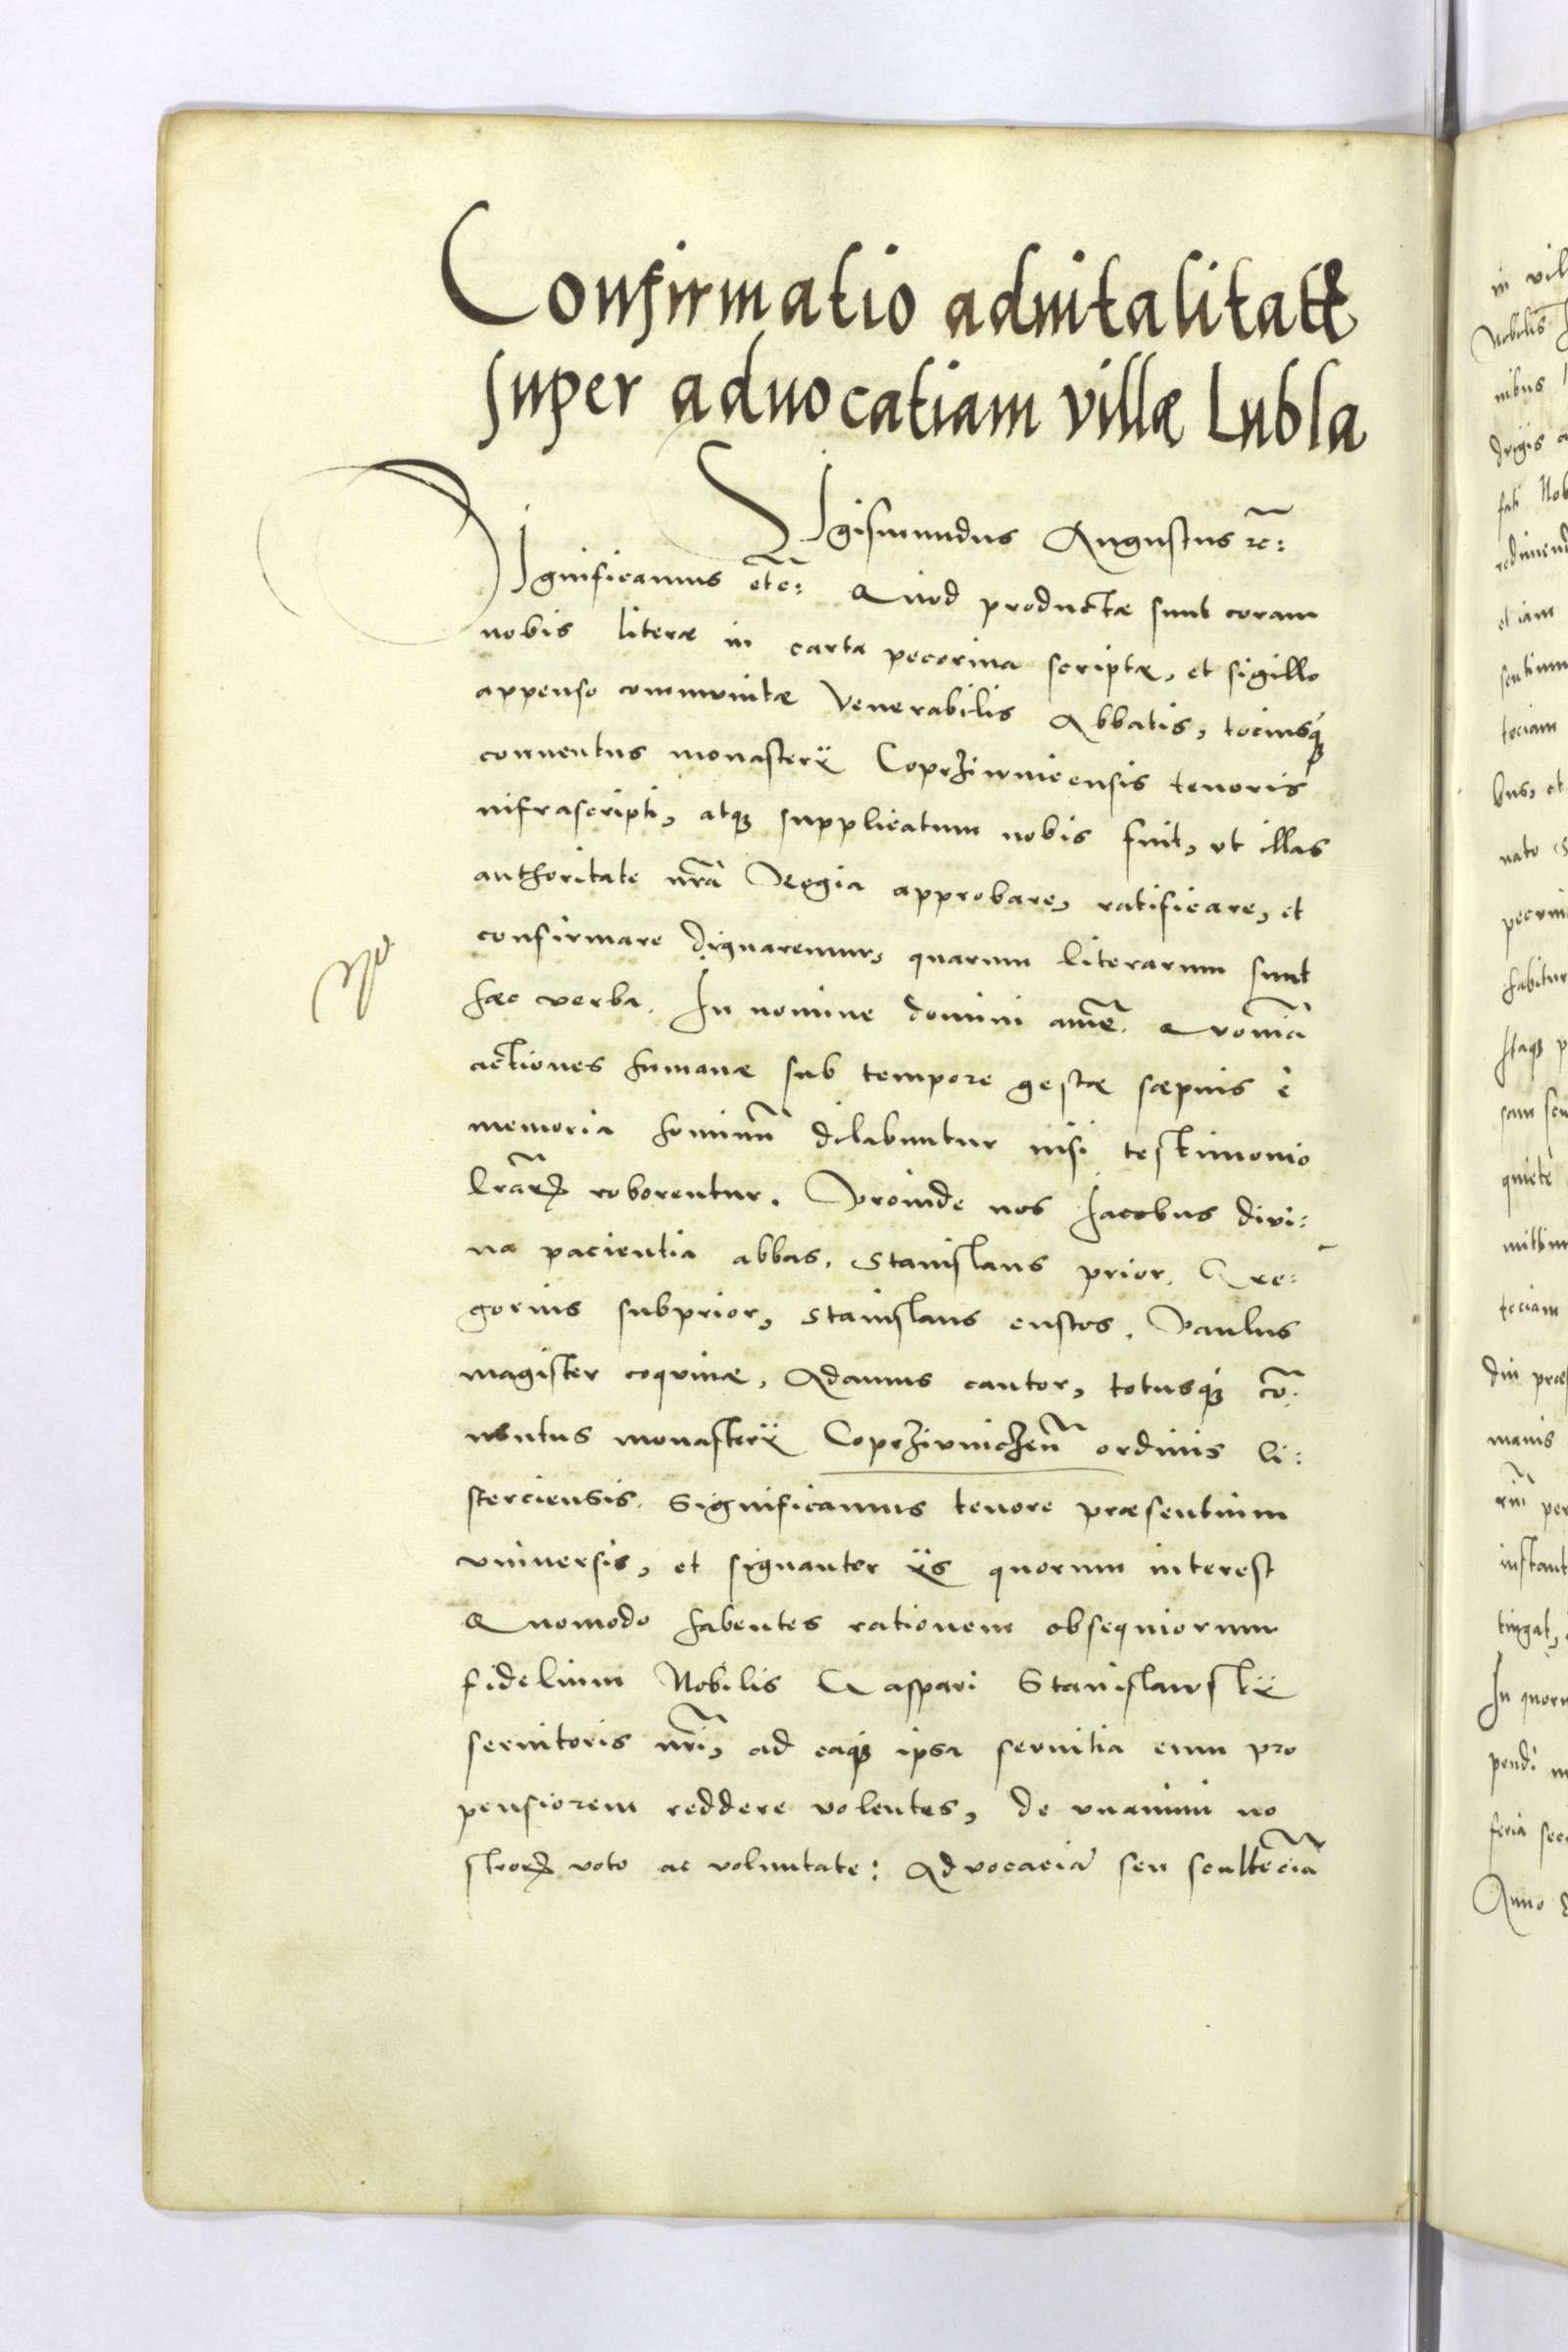 Confirmatio advitalitatꝭ
super aduocatiam villæ Lubla
SIgismundus Augustus rc̃:
SIgnificamus etc̃: Quod productæ sunt coram
nobis literæ in carta pecorina scriptæ, et sigillo
appenso communitæ Venerabilis Abbatis, tociusq́ꝫ
conuentus monasterÿ Coprziwnicensis tenoris
infrascripti, atqꝫ supplicatum nobis fuit, vt illas
authoritate nr̃a Regia approbare, ratificare, et
confirmare dignaremur, quarum literarum sunt
hæc verba. In nomine domini amẽ. Quoniã
actiones humanæ sub tempore gestæ sæpius è
memoria hominũ dilabuntur nisi testimonio
lr̃arꝝ roborentur. Proinde nos Jacobus diui:
na pacientia abbas. Stanislaus prior. Gre:
gorius subprior, Stanislaus custos. Paulus
magister coquinæ, Adamus cantor, totusq́ꝫ cõ:
uentus monasterÿ Coprziunicheñ ordinis Ci:
sterciensis. Significamus tenore præsentium
vniuersis, et signanter ÿs quorum interest
Quomodo habentes rationem obsequiorum
fidelium Nobilis Caspari Stanislawskÿ
seruitoris nr̃i, ad eaq́ꝫ ipsa seruitia eum pro
pensiorem reddere volentes, de vnanimi no
strorꝝ voto ac voluntate: Aduocaciã seu scultẽciã
in vil
Nobilis
nibus
fati Nob
redimend
et iam
sentium
teciam
bus, et
nato S
pecuni
habitur
Itaqꝫ p
sam seu
quiete
teciam
din præs
manis
riũ per
instant
tingat,
In quoru
pendi m
feria sec
Anno